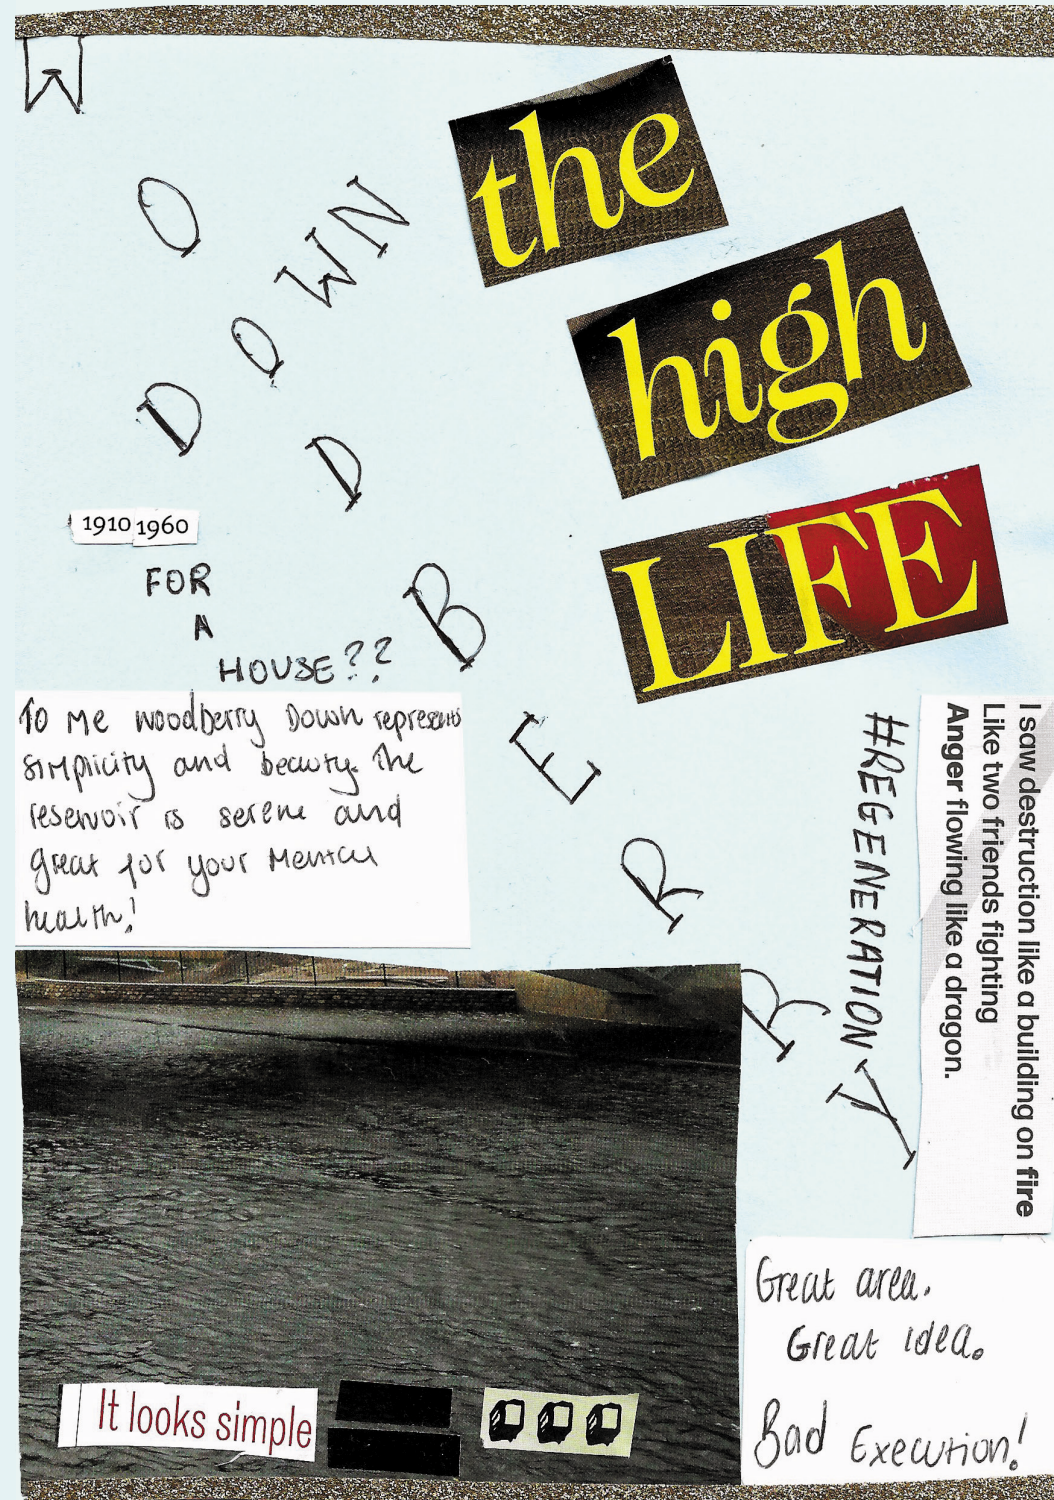 WOODBERRY
DOWN
the
high
LIFE
1910 1960
FOR
A
HOUSE??
To Me woodberry Down represents
simplicity and beauty. The
reservoir is serene and
great for your Mental
health!
#REGENERATION
I saw destruction like a building on fire
Like two friends fighting
Anger flowing like a dragon.
Great area.
Great idea.
Bad Execution!
It looks simple